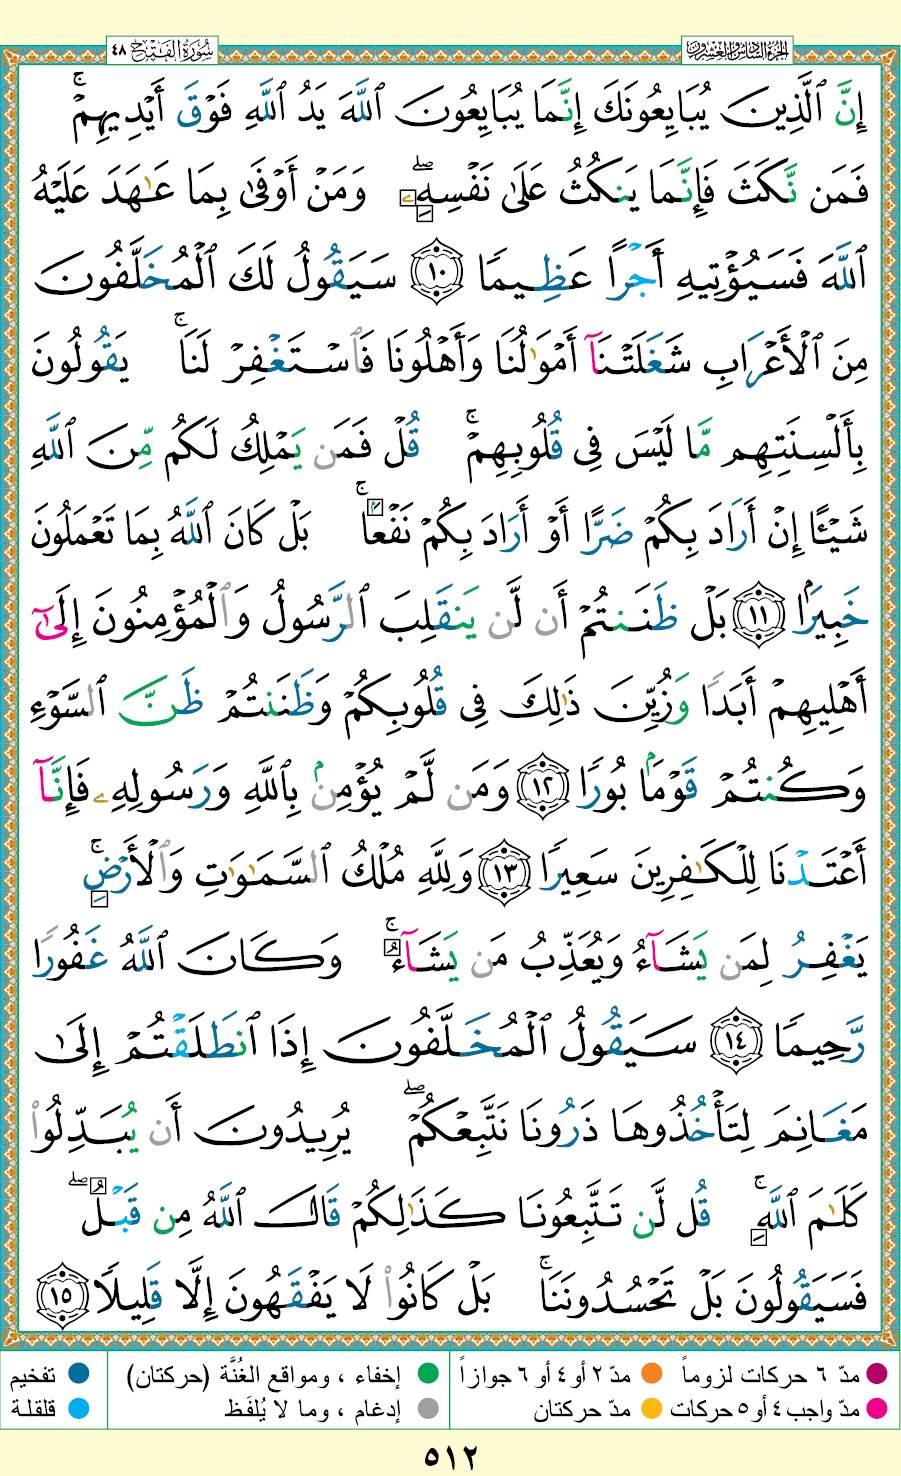 الجزء السادس والعشرون
سُورَةُ الفَتْح ٤٨
إِنَّ ٱلَّذِينَ يُبَايِعُونَكَ إِنَّمَا يُبَايِعُونَ ٱللَّهَ يَدُ ٱللَّهِ فَوْقَ أَيْدِيهِمْۚ
فَمَن نَّكَثَ فَإِنَّمَا يَنكُثُ عَلَىٰ نَفْسِهِۦۖ وَمَنْ أَوْفَىٰ بِمَا عَـٰهَدَ عَلَيْهُ
ٱللَّهَ فَسَيُؤْتِيهِ أَجْرًا عَظِيمًا ١٠ سَيَقُولُ لَكَ ٱلْمُخَلَّفُونَ
مِنَ ٱلْأَعْرَابِ شَغَلَتْنَآ أَمْوَٰلُنَا وَأَهْلُونَا فَٱسْتَغْفِرْ لَنَاۚ يَقُولُونَ
بِأَلْسِنَتِهِم مَّا لَيْسَ فِى قُلُوبِهِمْۚ قُلْ فَمَن يَمْلِكُ لَكُم مِّنَ ٱللَّهِ
شَيْـًٔا إِنْ أَرَادَ بِكُمْ ضَرًّا أَوْ أَرَادَ بِكُمْ نَفْعًۢاۚ بَلْ كَانَ ٱللَّهُ بِمَا تَعْمَلُونَ
خَبِيرًۢا ١١ بَلْ ظَنَنتُمْ أَن لَّن يَنقَلِبَ ٱلرَّسُولُ وَٱلْمُؤْمِنُونَ إِلَىٰٓ
أَهْلِيهِمْ أَبَدًا وَزُيِّنَ ذَٰلِكَ فِى قُلُوبِكُمْ وَظَنَنتُمْ ظَنَّ ٱلسَّوْءِ
وَكُنتُمْ قَوْمًۢا بُورًا ١٢ وَمَن لَّمْ يُؤْمِنۢ بِٱللَّهِ وَرَسُولِهِۦ فَإِنَّآ
أَعْتَدْنَا لِلْكَـٰفِرِينَ سَعِيرًا ١٣ وَلِلَّهِ مُلْكُ ٱلسَّمَـٰوَٰتِ وَٱلْأَرْضِۚ
يَغْفِرُ لِمَن يَشَآءُ وَيُعَذِّبُ مَن يَشَآءُۚ وَكَانَ ٱللَّهُ غَفُورًا
رَّحِيمًا ١٤ سَيَقُولُ ٱلْمُخَلَّفُونَ إِذَا ٱنطَلَقْتُمْ إِلَىٰ
مَغَانِمَ لِتَأْخُذُوهَا ذَرُونَا نَتَّبِعْكُمْۖ يُرِيدُونَ أَن يُبَدِّلُوا۟
كَلَـٰمَ ٱللَّهِۚ قُل لَّن تَتَّبِعُونَا كَذَٰلِكُمْ قَالَ ٱللَّهُ مِن قَبْلُۖ
فَسَيَقُولُونَ بَلْ تَحْسُدُونَنَاۚ بَلْ كَانُوا۟ لَا يَفْقَهُونَ إِلَّا قَلِيلًا ١٥
مدّ ٦ حركات لزوماً مدّ ٢ أو ٤ أو ٦ جوازاً إخفاء ، ومواقع الغُنَّة (حركتان) تفخيم
مدّ واجب ٤ أو ٥ حركات مدّ حركتان إدغام ، وما لا يُلفَظ قلقلة
٥١٢